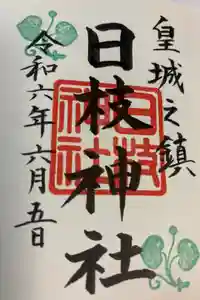 皇城之鎮
日枝神社
令和六年六月五日
日枝
神社